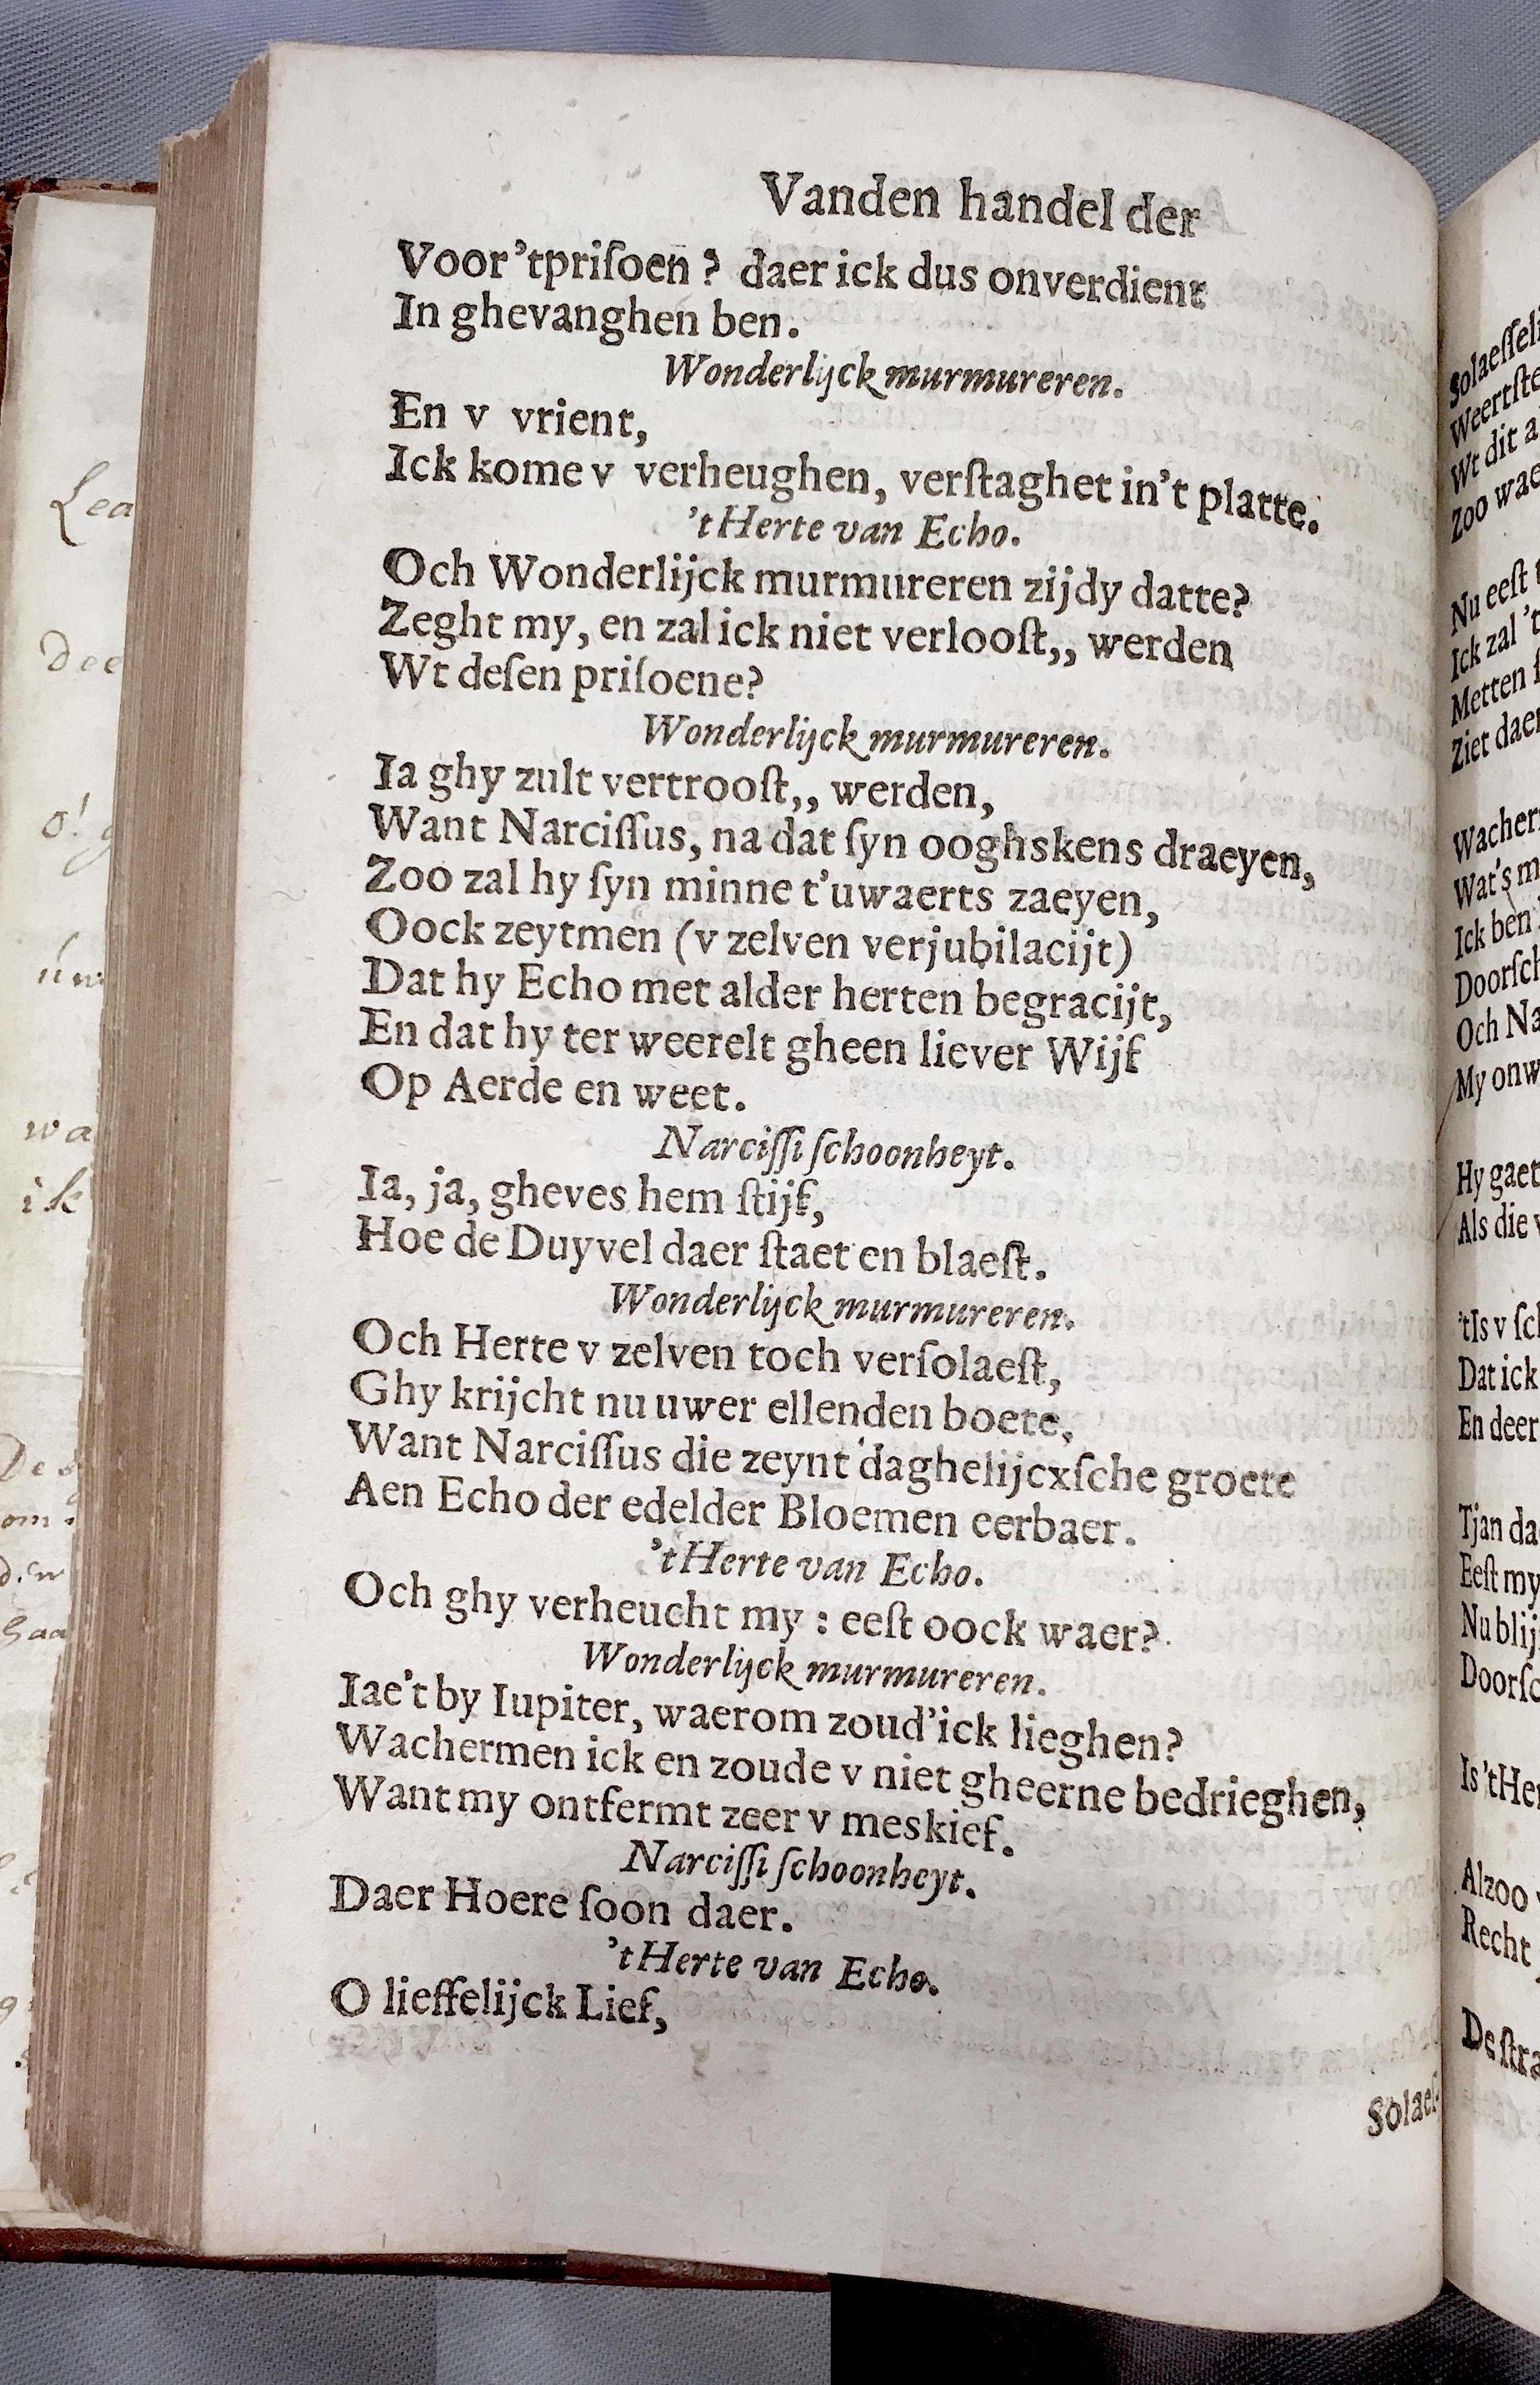 Vanden handel der
Voor'tpriſoen? daer ick dus onverdient
In ghevanghen ben.
Wonderlijck murmureren.
En v vrient,
Ick kome v verheughen, verſtaghet in't platte.
'tHerte van Echo.
Och Wonderlijck murmureren zijdy datte?
Zeght my, en zal ick niet verlooſt,, werden
Wt deſen priſoene?
Wonderlijck murmureren.
Ia ghy zult vertrooſt,, werden,
Want Narciſſus, na dat ſyn ooghskens draeyen,
Zoo zal hy ſyn minne t'uwaerts zaeyen,
Oock zeytmen (v zelven verjubilacijt)
Dat hy Echo met alder herten begracijt,
En dat hy ter weerelt gheen liever Wijf
Op Aerde en weet.
Narciſſi ſchoonheyt.
Ia, ja, gheves hem ſtijf,
Hoe de Duyvel daer ſtaet en blaeſt.
Wonderlijck murmureren.
Och Herte v zelven toch verſolaeſt,
Ghy krijcht nu uwer ellenden boete,
Want Narciſſus die zeynt daghelijcxſche groete
Aen Echo der edelder Bloemen eerbaer.
'tHerte van Echo.
Och ghy verheucht my : eeſt oock waer?
Wonderlijck murmureren.
Iae't by Iupiter, waerom zoud'ick lieghen?
Wachermen ick en zoude v niet gheerne bedrieghen,
Want my ontfermt zeer v meskief.
Narciſſi ſchoonheyt.
Daer Hoere ſoon daer.
'tHerte van Echo.
O lieffelijck Lief,
Solaeſ
Wt dit
Zoo
Nu eeſt
Ick zal
Metten
Ziet daer
Wat's
Ick ben
Och
My
Hy gaet
Als die
'tIs v
Dat ick
En deer
Tjan
Eeſt my
Is
Alzoo
Recht
De
Lea
dee
o!
wa
ik